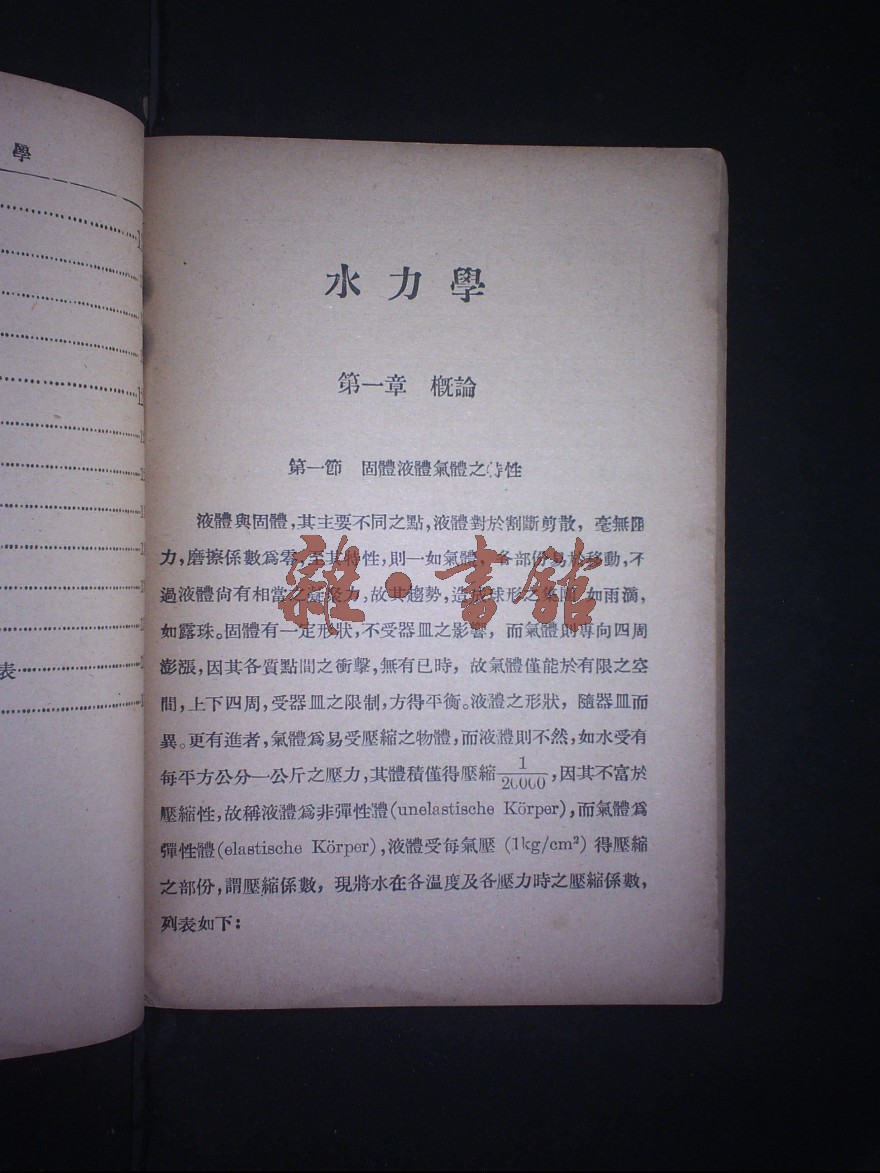 學
表
水力學
第一章 概論
第一節 固體液體氣體之特性
液體與固體,其主要不同之點,液體對於割斷剪散,毫無阻
力,磨擦係數爲零,至其特性,則一如氣體,各部份易於移動,不
過液體尙有相當之凝聚力,故其趨勢,造成球形之集團,如雨滴,
如露珠。固體有一定形狀,不受器皿之影響,而氣體則專向四周
澎漲,因其各質點間之衝擊,無有已時,故氣體僅能於有限之空
間,上下四周,受器皿之限制,方得平衡。液體之形狀,隨器皿而
異。更有進者,氣體爲易受壓縮之物體,而液體則不然,如水受有
每平方公分一公斤之壓力,其體積僅得壓縮 1/20000,因其不富於
壓縮性,故稱液體爲非彈性體(unelastische Körper),而氣體爲
彈性體(elastische Körper),液體受每氣壓 (1kg/cm²) 得壓縮
之部份,謂壓縮係數,現將水在各温度及各壓力時之壓縮係數,
列表如下:
雜·書館